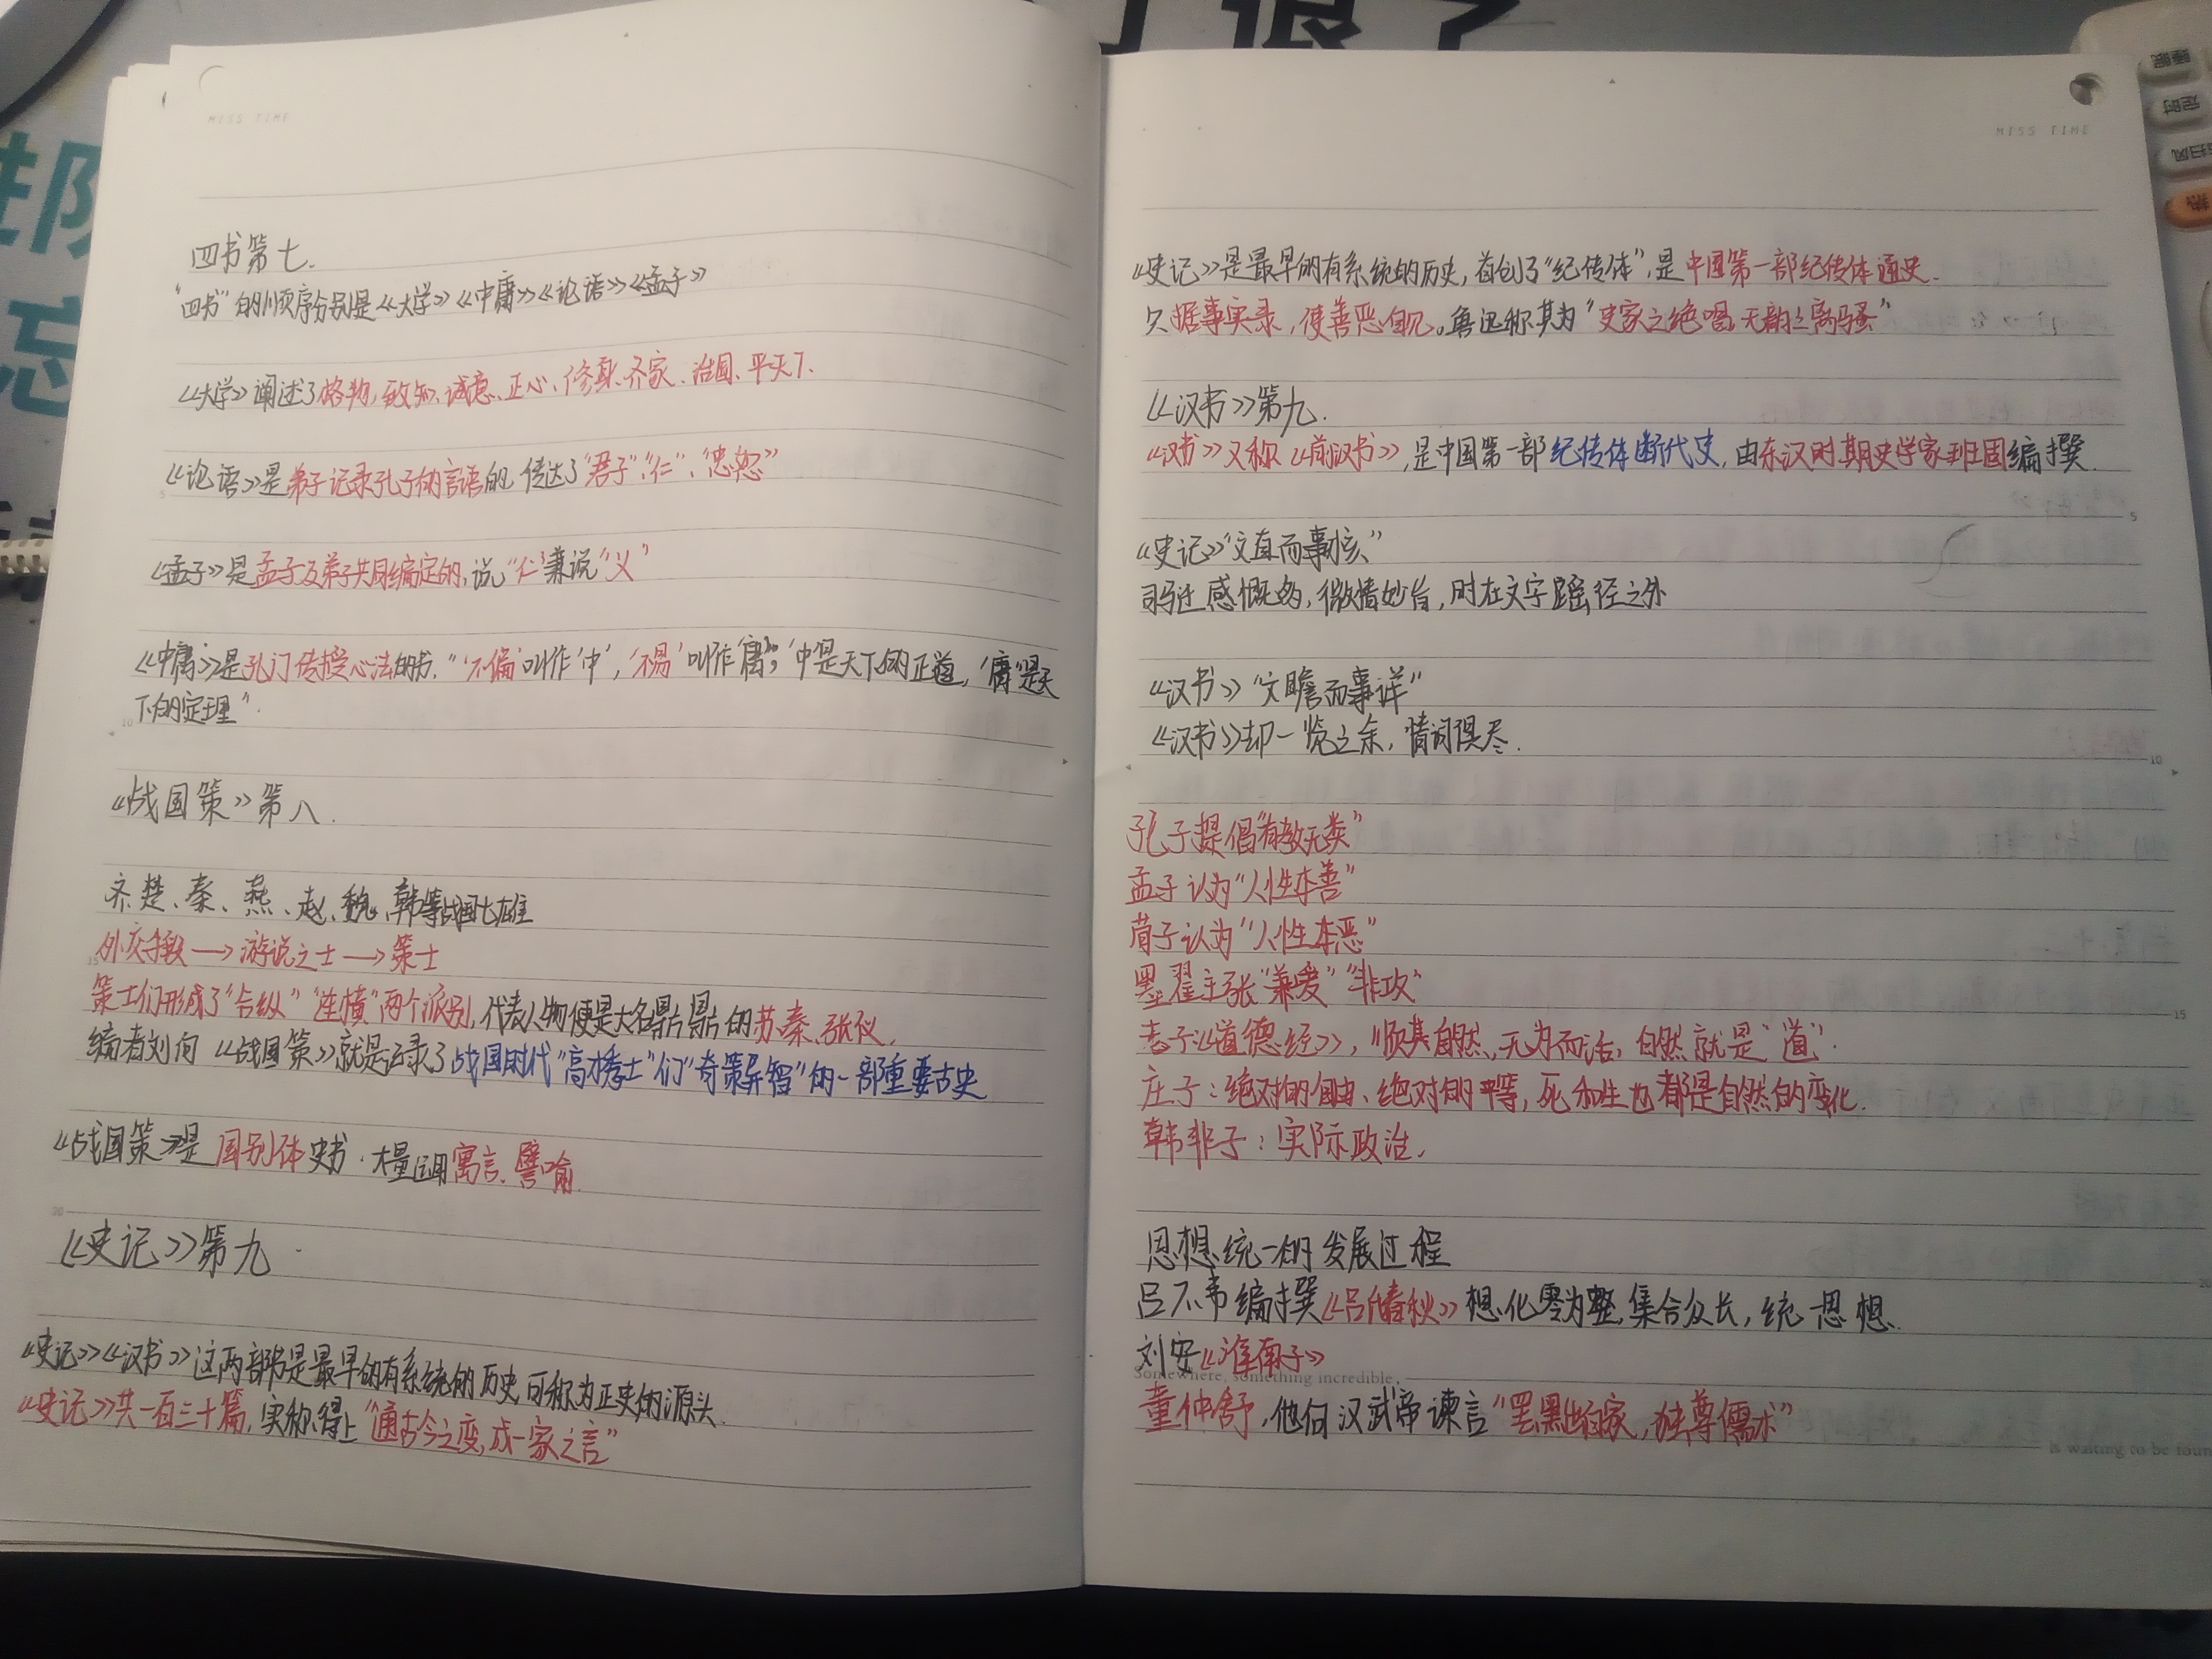 MISS TIME
四书第七.
“四书”的顺序分别是《大学》《中庸》《论语》《孟子》
《大学》阐述了格物、致知、诚意、正心、修身、齐家、治国、平天下.
《论语》是弟子记录孔子的言语的,传达了“君子”、“仁”、“忠恕”
《孟子》是孟子及弟子共同编定的,说“仁”兼说“义”
《中庸》是孔门传授心法的书.“‘不偏’叫作‘中’,‘不易’叫作‘庸’;‘中’是天下的正道,‘庸’是天
下的定理”.
《战国策》第八.
齐、楚、秦、燕、赵、魏、韩等战国七雄
外交手段→游说之士→策士
策士们形成了“合纵”“连横”两个派别,代表人物便是大名鼎鼎的苏秦、张仪.
编者刘向《战国策》就是记录了战国时代“高才秀士”们“奇策异智”的一部重要古史
《战国策》是国别体史书.大量运用寓言、譬喻.
《史记》第九.
《史记》《汉书》这两部书是最早的有系统的历史,可称为正史的源头.
《史记》共一百三十篇,实称得上“通古今之变,成一家之言”
MISS TIME
《史记》是最早的有系统的历史,首创了“纪传体”,是中国第一部纪传体通史.
欠据事实录,使善恶自见。鲁迅称其为“史家之绝唱,无韵之离骚”
《汉书》第九.
《汉书》又称《前汉书》,是中国第一部纪传体断代史,由东汉时期史学家班固编撰.
《史记》“文直而事核”
司马迁感慨多,微情妙旨,时在文字蹊径之外
《汉书》“文赡而事详”
《汉书》却一览之余,情词俱尽.
孔子提倡“有教无类”
孟子认为“人性本善”
荀子认为“人性本恶”
墨翟主张“兼爱”“非攻”
老子:《道德经》,“顺其自然,无为而治,自然就是‘道’.
庄子:绝对的自由、绝对的平等,死和生也都是自然的变化.
韩非子:实际政治.
思想统一的发展过程
吕不韦编撰《吕氏春秋》想化零为整,集合众长,统一思想.
刘安《淮南子》
Somewhere, something incredible
董仲舒,他向汉武帝谏言“罢黜百家,独尊儒术”
is waiting to be foun